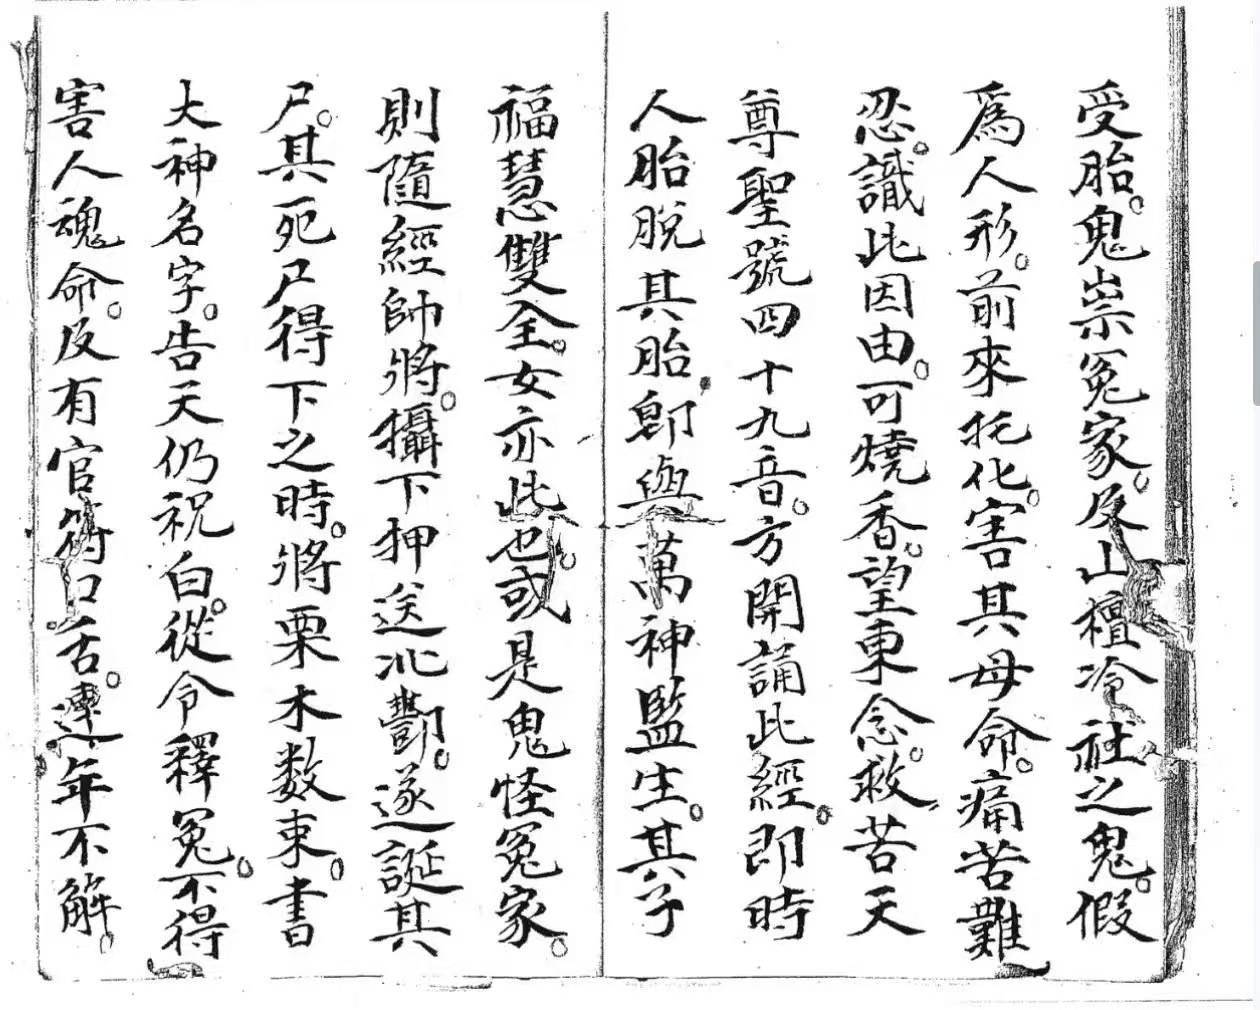 受胎。鬼祟冤家。及山檀冷社之鬼。假
爲人形。前來托化。害其母命。痛苦難
忍。識此因由。可燒香。望東念救苦天
尊聖號四十九音。方開誦此經。即時
人胎脫其胎。卽與萬神監生。其子
福慧雙全。女亦此也。或是鬼怪冤家。
則隨經帥將。攝下押送北酆。遂誕其
尸。其死尸得下之時。將栗木数束。書
大神名字。告天仍祝白。從令釋冤。不得
害人魂命。反有官符口舌。連年不解。